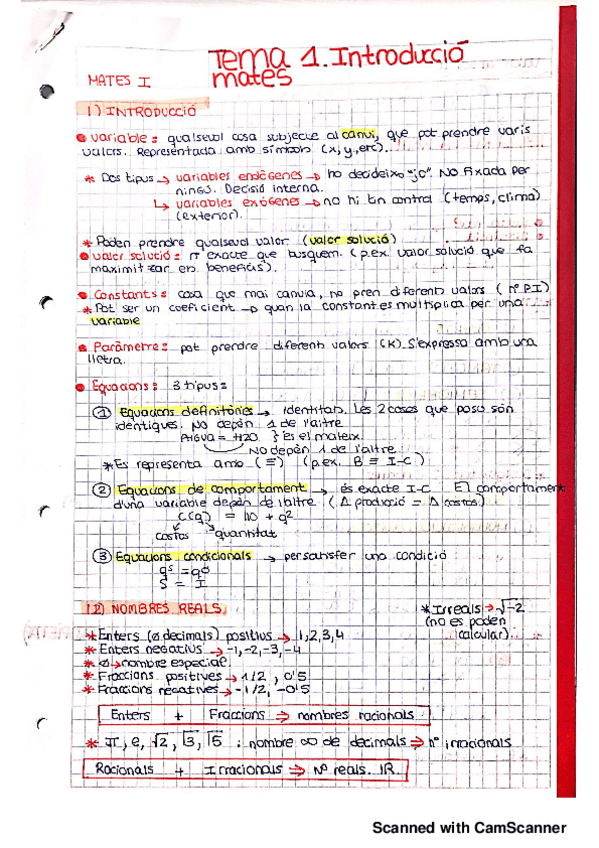 Tema 1. Introducció
MATES I mates
1) INTRODUCCIÓ
• variable: qualsevol cosa subjecte al canvi, que pot prendre varis
valors. Representada amb símbols (x, y, etc).
* Dos tipus → variables endògenes → ho decideixo "jo". NO Fixada per
ningú. Decisió interna.
↳ variables exògenes → no hi tin control (temps, clima)
(exterior).
* Poden prendre qualsevol valor (valor solució)
• valor solució: nº exacte que busquem. (p.ex. valor solució que fa
maximitzar els beneficis).
• Constants: cosa que mai canvia, no pren diferents valors (nº PI)
* Pot ser un coeficient → quan la constant es multiplica per una
variable
• Paràmetre: pot prendre diferents valors (K) S'expressa amb una
lletra.
• Equacions: 3 tipus:
① Equacions definitòries → identitats. Les 2 coses que poso són
idèntiques. NO depèn 1 de l'altre
AIGUA = H2O } és el mateix.
NO depèn 1 de l'altre
* Es representa amb (≡) (p.ex. B ≡ I-C)
② Equacions de comportament → és exacte I-C El comportament
d'una variable depèn de l'altre (Δ producció = Δ costos)
C(q) = 110 + q²
costos quantitat
③ Equacions condicionals → per satisfer una condició
qˢ = qᵈ
S = I
1.2) NOMBRES REALS
* Irreals → √-2
(no es poden
calcular).
* Enters (ø decimals) positius → 1, 2, 3, 4
* Enters negatius → -1, -2, -3, -4
* ø → nombre especial
* Fraccions positives → 1/2, 0'5
* Fraccions negatives → -1/2, -0'5
Enters + Fraccions ⇒ nombres racionals
* π, e, √2, √3, √5 : nombre ∞ de decimals → nº irracionals
Racionals + Irracionals ⇒ Nº reals. IR.
Scanned with CamScanner